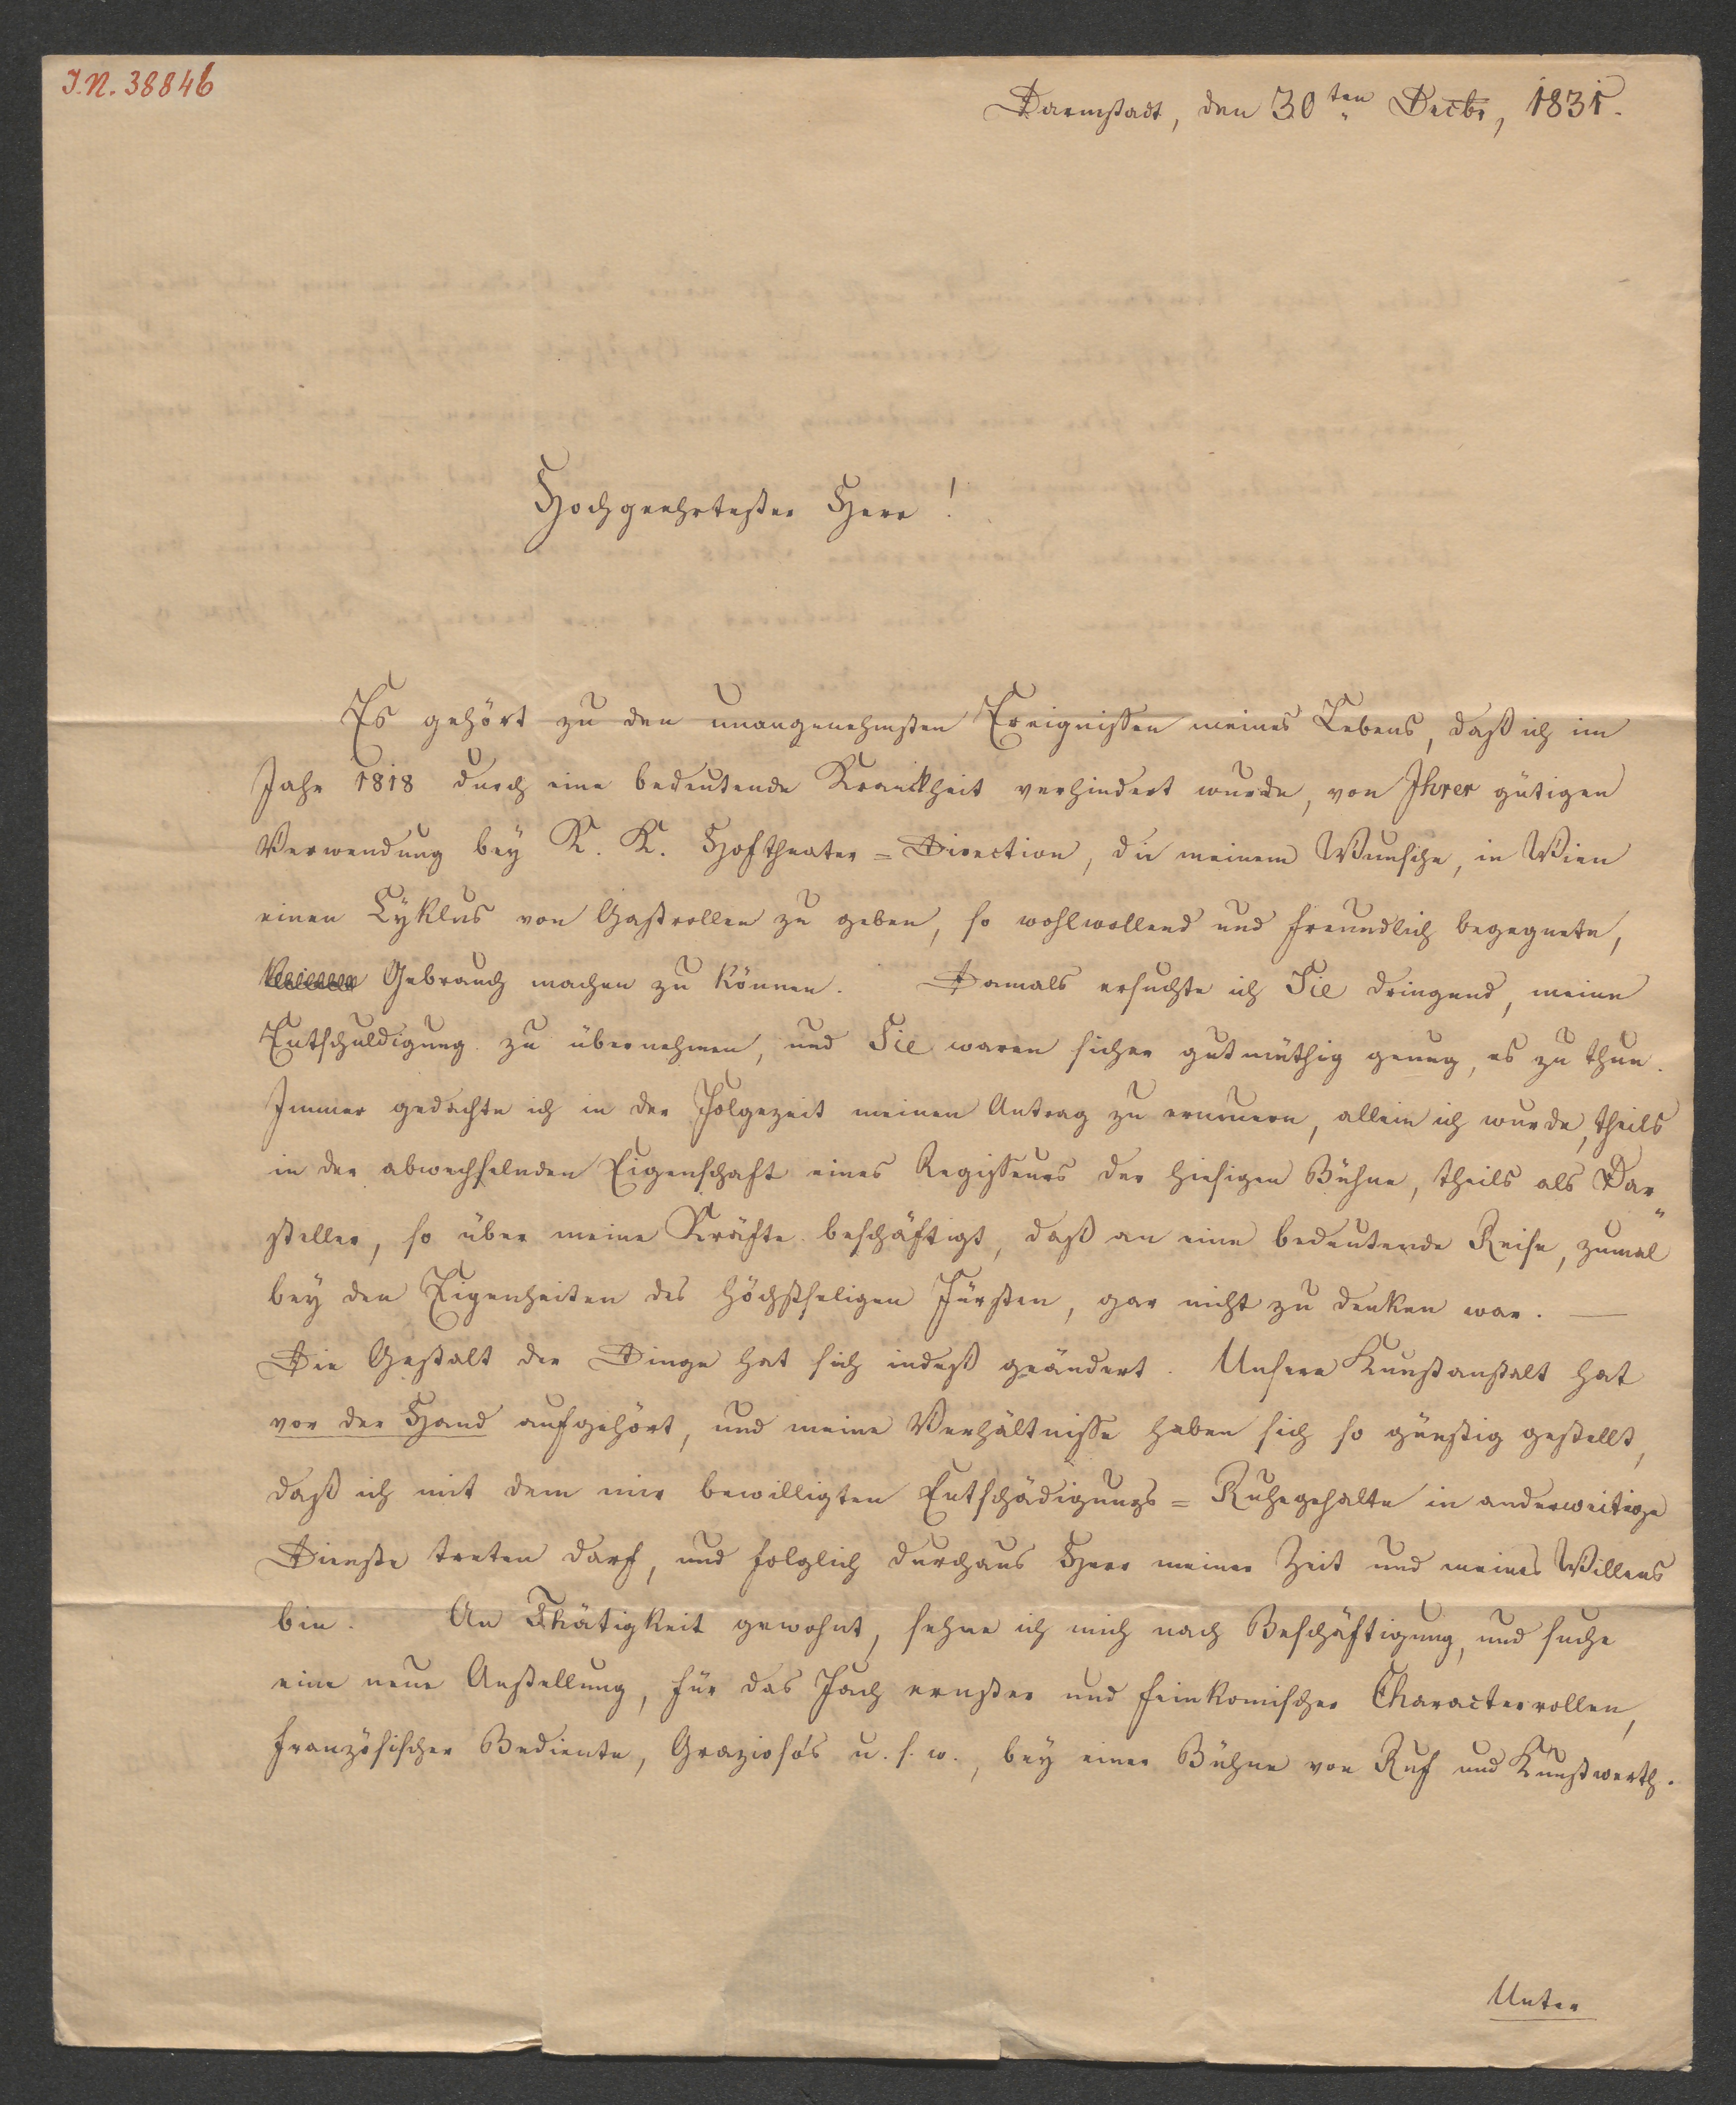 I.N. 38846
Darmstadt, den 30ten Decbr, 1831.
Hochgeehrtester Herr!
Es gehört zu den unangenehmsten Ereignissen meines Lebens, daß ich im
Jahr 1818 durch eine bedeutende Krankheit verhindert wurde, von Ihrer gütigen
Verwendung bey K. K. Hoftheater=Direction, die meinem Wunsche, in Wien
einen Cyklus von Gastrollen zu geben, so wohlwollend und freundlich begegnete,
Gebrauch machen zu können. Damals ersuchte ich Sie dringend, meine
Entschuldigung zu übernehmen, und Sie waren sicher gutmüthig genug, es zu thun.
Immer gedachte ich in der Folgezeit meinen Antrag zu erneuern, allein ich wurde, theils
in der abwechselnden Eigenschaft eines Regisseurs der hiesigen Bühne, theils als Dar"
steller, so über meine Kräfte beschäftigt, daß an eine bedeutende Reise, zumal
bey den Eigenheiten des höchstseligen Fürsten, gar nicht zu denken war. —
Die Gestalt der Dinge hat sich indeß geändert. Unsere Kunstanstalt hat
vor der Hand aufgehört, und meine Verhältnisse haben sich so günstig gestellt,
daß ich mit dem mir bewilligten Entschädigungs=Ruhegehalte in anderweitige
Dienste treten darf, und folglich durchaus Herr meiner Zeit und meines Willens
bin. An Thätigkeit gewohnt, sehne ich mich nach Beschäftigung, und suche
eine neue Anstellung, für das Fach ernster und feinkomischer Characterrollen,
französischer Bediente, Grazioso's u. s. w., bey einer Bühne von Ruf und Kunstwerth.
Unter